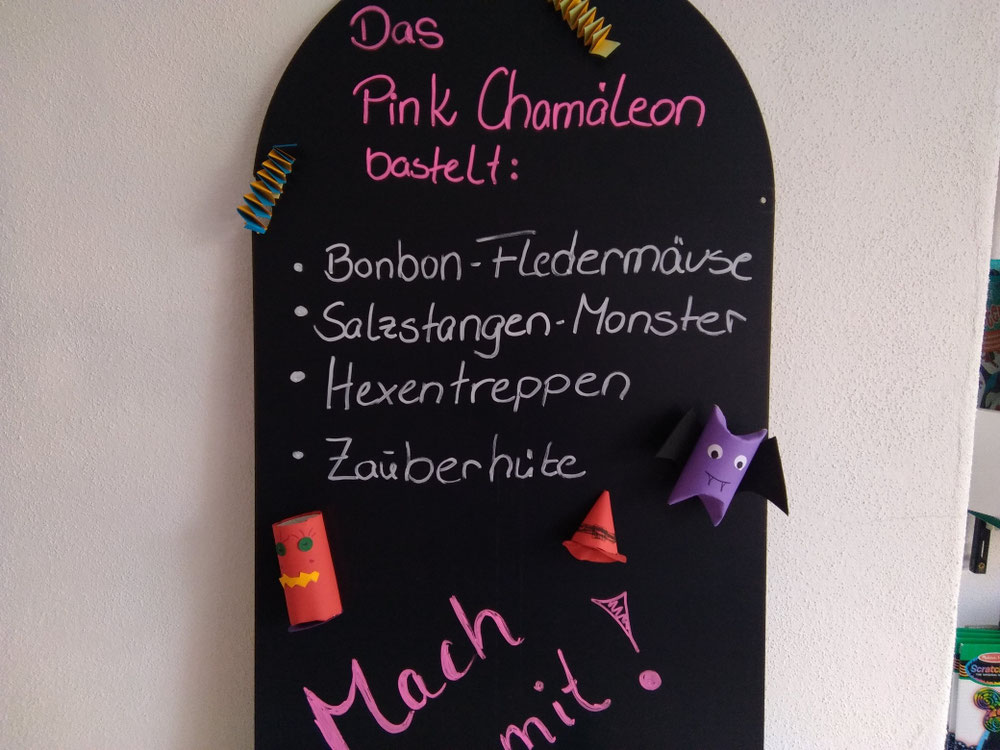 Das
Pink Chamäleon
bastelt:
• Bonbon-Fledermäuse
• Salzstangen-Monster
• Hexentreppen
• Zauberhüte
Mach
mit!
Scratch